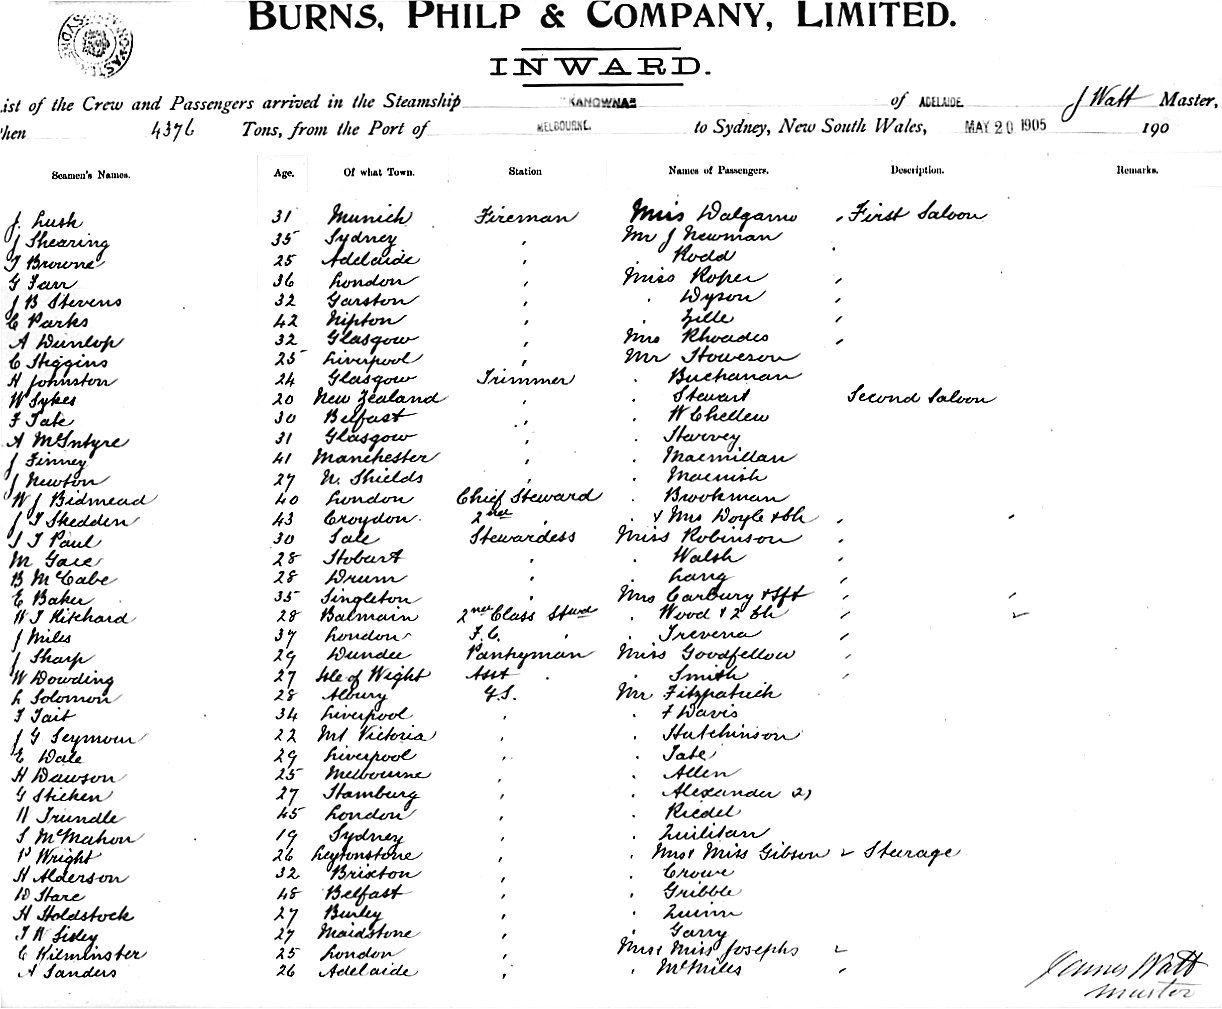 BURNS, PHILP & COMPANY, LIMITED.
INWARD.
ist of the Crew and Passengers arrived in the Steamship "KANOWNA" of ADELAIDE J Watt Master,
hen 4376 Tons, from the Port of MELBOURNE to Sydney, New South Wales, MAY 20 1905 190
Seamen's Names. Age. Of what Town. Station Names of Passengers. Description. Remarks.
J. Lush 31 Munich Fireman Miss Dalgarno , First Saloon
J Shearing 35 Sydney , Mr J Newman
T Browne 25 Adelaide , . Rodd
G Farr 36 London , Miss Roper ,
J B Stevens 32 Garston , . Dyson ,
C Parks 42 Nipton , . Zille ,
A Dunlop 32 Glasgow , Mrs Rhoades ,
C Higgins 25 Liverpool , Mr Howeson
H Johnston 24 Glasgow Trimmer . Buchanan
W Sykes 20 New Zealand , . Stewart Second Saloon
F Tate 30 Belfast , . W Chellew
A McIntyre 31 Glasgow , . Harvey
J Finney 41 Manchester , . Macmillan
J Newton 27 N. Shields , . Macnish
W J Bidmead 40 London Chief Steward . Brookman
J T Skedden 43 Croydon 2nd , . & Mrs Doyle & Ch ,
S J Paul 30 Sale Stewardess Miss Robinson ,
M Gace 28 Hobart , . Walsh ,
B McCabe 28 Drum , . Lang ,
E Baker 35 Singleton , Mrs Carbury & Sft ,
W T Kitchard 28 Balmain 2nd Class Stwd . Wood & 2 Ch ,
J Miles 37 London F.C. , . Trevena ,
J Sharp 29 Dundee Pantryman Miss Goodfellow ,
W Dowding 27 Isle of Wight Asst . . Smith ,
L Solomon 28 Albury G.S. Mr Fitzpatrick
T Tait 34 Liverpool , . F Davis
J G Seymour 22 Mt Victoria , . Hutchinson
E Dale 29 Liverpool , . Tate
H Dawson 25 Melbourne , . Allen
G Stichen 27 Hamburg , . Alexander 2)
H Trundle 45 London , . Riedel
S McMahon 19 Sydney , . Quilitan
P Wright 26 Leytonstone , . Mrs & Miss Gibson Steerage
H Alderson 32 Brixton , . Crowe
D Hare 48 Belfast , . Gribble
H Holdstock 27 Burley , . Quinn
T W Sisley 27 Maidstone , . Garry
C Kilminster 25 London , Mrs & Miss Josephs
A Sanders 26 Adelaide , . McMiles ,
James Watt
Master